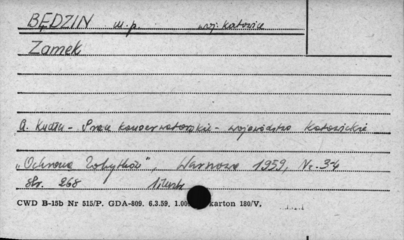 BĘDZIN m.p. woj. katowice
Zamek
A. Kudła - Prace konserwatorskie - województwo Katowickie
„Ochrona Zabytków", Warszawa 1959, Nr. 3-4
str. 268
CWD B-15b Nr 515/P. GDA-809. 6.3.59, 1.00 karton 180/V,